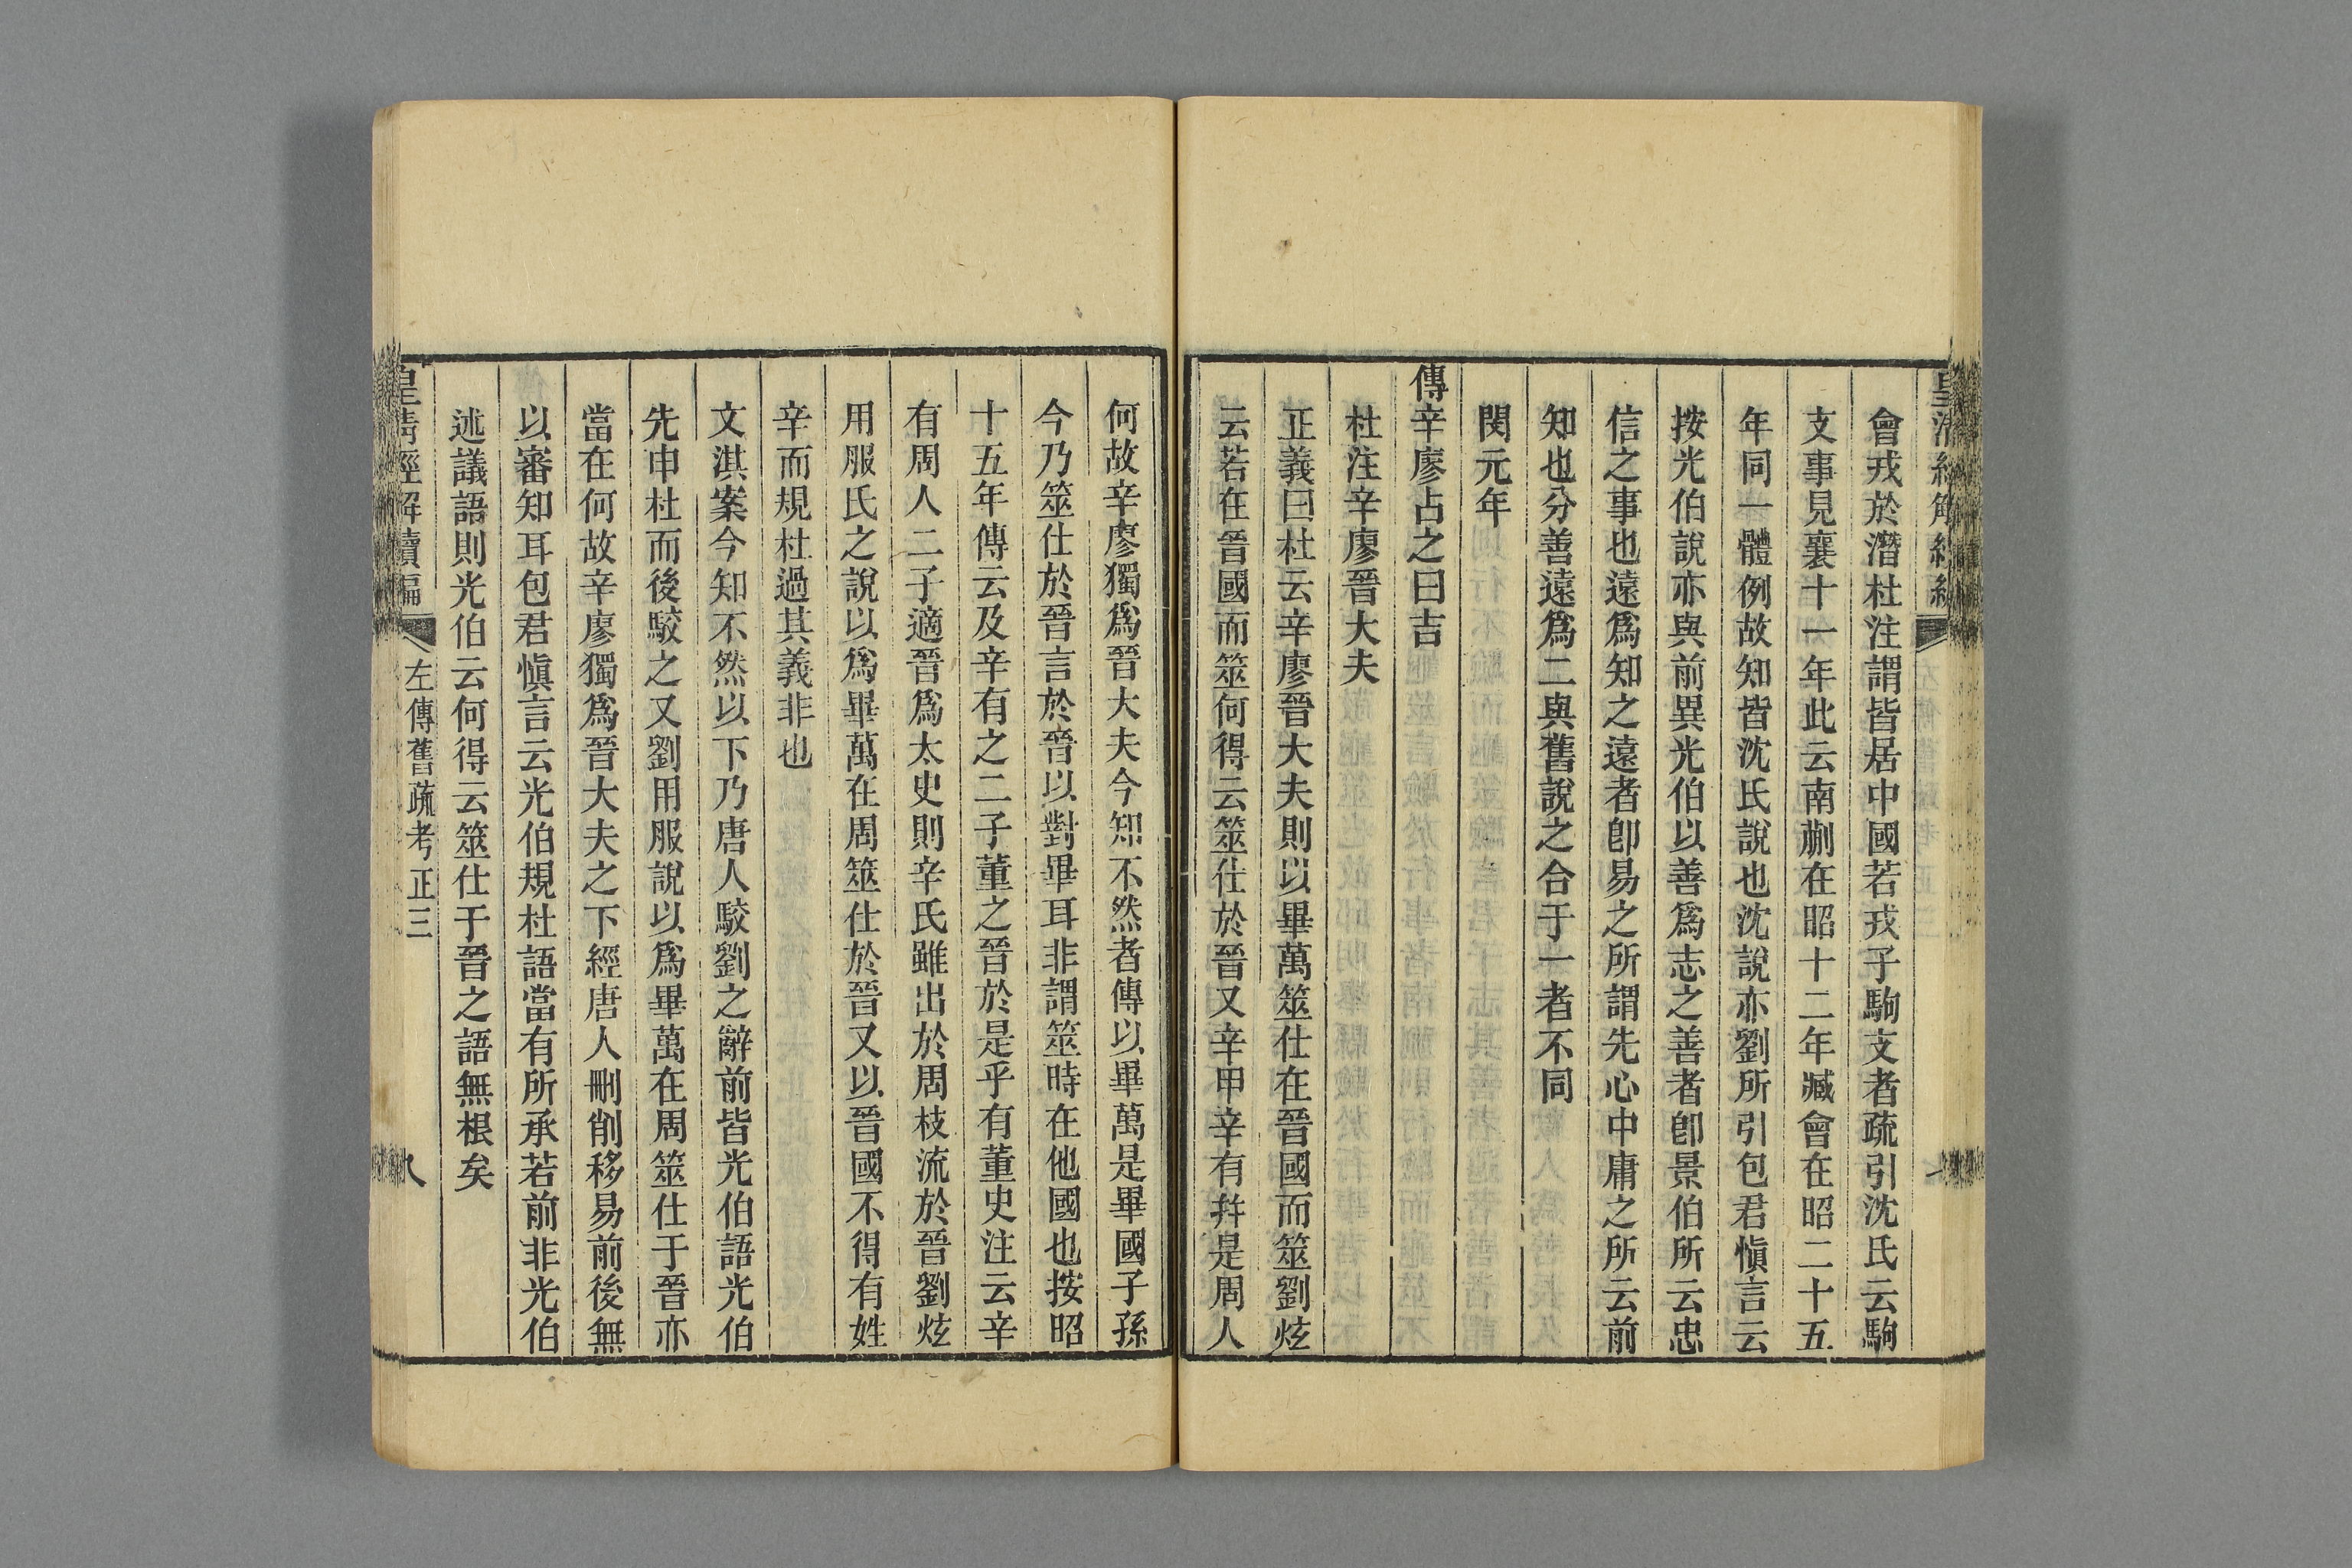 會戎於潛杜注謂皆居中國若戎子駒支者疏引沈氏云駒
支事見襄十一年此云南蒯在昭十二年臧會在昭二十五
年同一體例故知皆沈氏說也沈說亦劉所引包君愼言云
按光伯說亦與前異光伯以善爲志之善者卽景伯所云忠
信之事也遠爲知之遠者卽易之所謂先心中庸之所云前
知也分善遠爲二與舊說之合于一者不同
閔元年
傳辛廖占之曰吉
杜注辛廖晉大夫
正義曰杜云辛廖晉大夫則以畢萬筮仕在晉國而筮劉炫
云若在晉國而筮何得云筮仕於晉又辛甲辛有幷是周人
何故辛廖獨爲晉大夫今知不然者傳以畢萬是畢國子孫
今乃筮仕於晉言於晉以對畢耳非謂筮時在他國也按昭
十五年傳云及辛有之二子董之晉於是乎有董史注云辛
有周人二子適晉爲太史則辛氏雖出於周枝流於晉劉炫
用服氏之說以爲畢萬在周筮仕於晉又以晉國不得有姓
辛而規杜過其義非也
文淇案今知不然以下乃唐人駮劉之辭前皆光伯語光伯
先申杜而後駮之又劉用服說以爲畢萬在周筮仕于晉亦
當在何故辛廖獨爲晉大夫之下經唐人刪削移易前後無
以審知耳包君愼言云光伯規杜語當有所承若前非光伯
述議語則光伯云何得云筮仕于晉之語無根矣
皇清經解續編
左傳舊疏考正三
八